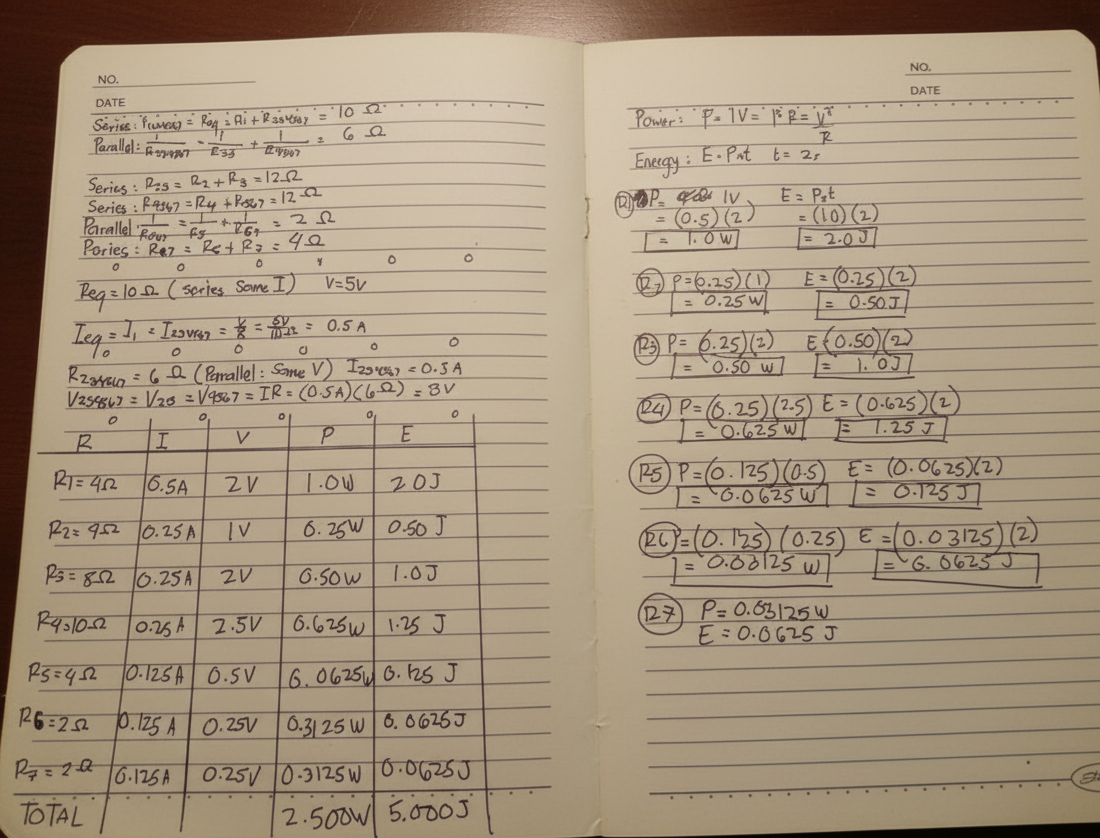 NO.
DATE
Series: = Req = R₁ + R₂₃₄₅₆₇ = 10 Ω
Parallel: 1/R₂₃₄₅₆₇ = 1/R₂₃ + 1/R₄₅₆₇ = 6 Ω
Series: R₂₃ = R₂ + R₃ = 12Ω
Series: R₄₅₆₇ = R₄ + R₅₆₇ = 12 Ω
Parallel 1/R₅₆₇ = 1/R₅ + 1/R₆₇ = 2 Ω
Pories: R₆₇ = R₆ + R₇ = 4Ω
Req = 10 Ω (series same I) V=5V
Ieq = I₁ = I₂₃₄₅₆₇ = V/R = 5V/10Ω = 0.5 A
R₂₃₄₅₆₇ = 6 Ω (Parallel: Same V) I₂₃₄₅₆₇ = 0.5 A
V₂₃₄₅₆₇ = V₂₃ = V₄₅₆₇ = IR = (0.5A)(6Ω) = 3V
R I V P E
R1=4Ω 0.5A 2V 1.0W 2.0J
R2=4Ω 0.25A 1V 0.25W 0.50 J
R3=8Ω 0.25A 2V 0.50W 1.0J
R4=10Ω 0.25A 2.5V 0.625W 1.25 J
R5=4Ω 0.125A 0.5V 0.0625W 0.125 J
R6=2Ω 0.125A 0.25V 0.3125W 0.0625J
R7=2Ω 0.125A 0.25V 0.3125W 0.0625J
TOTAL 2.500W 5.000J
NO.
DATE
Power: P= IV = I²R = V²/R
Eneergy: E=P△t t= 2s
R1 P= IV E= P△t
= (0.5)(2) = (10)(2)
= 1.0W = 2.0J
R2 P=(0.25)(1) E=(0.25)(2)
= 0.25W = 0.50J
R3 P= (0.25)(2) E=(0.50)(2)
= 0.50 W = 1.0J
R4 P=(0.25)(2.5) E= (0.625)(2)
= 0.625W = 1.25 J
R5 P=(0.125)(0.5) E= (0.0625)(2)
= 0.0625W = 0.125 J
R6 P=(0.125)(0.25) E=(0.03125)(2)
= 0.03125 W = 0.0625 J
R7 P= 0.03125W
E= 0.0625 J